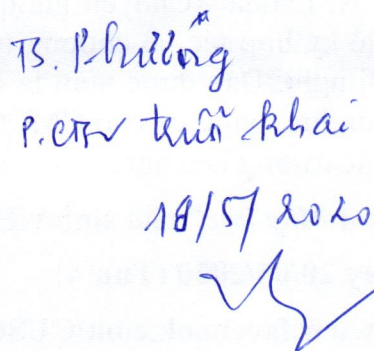 TS. Phường
P. CTSV triển khai
18/5/2020